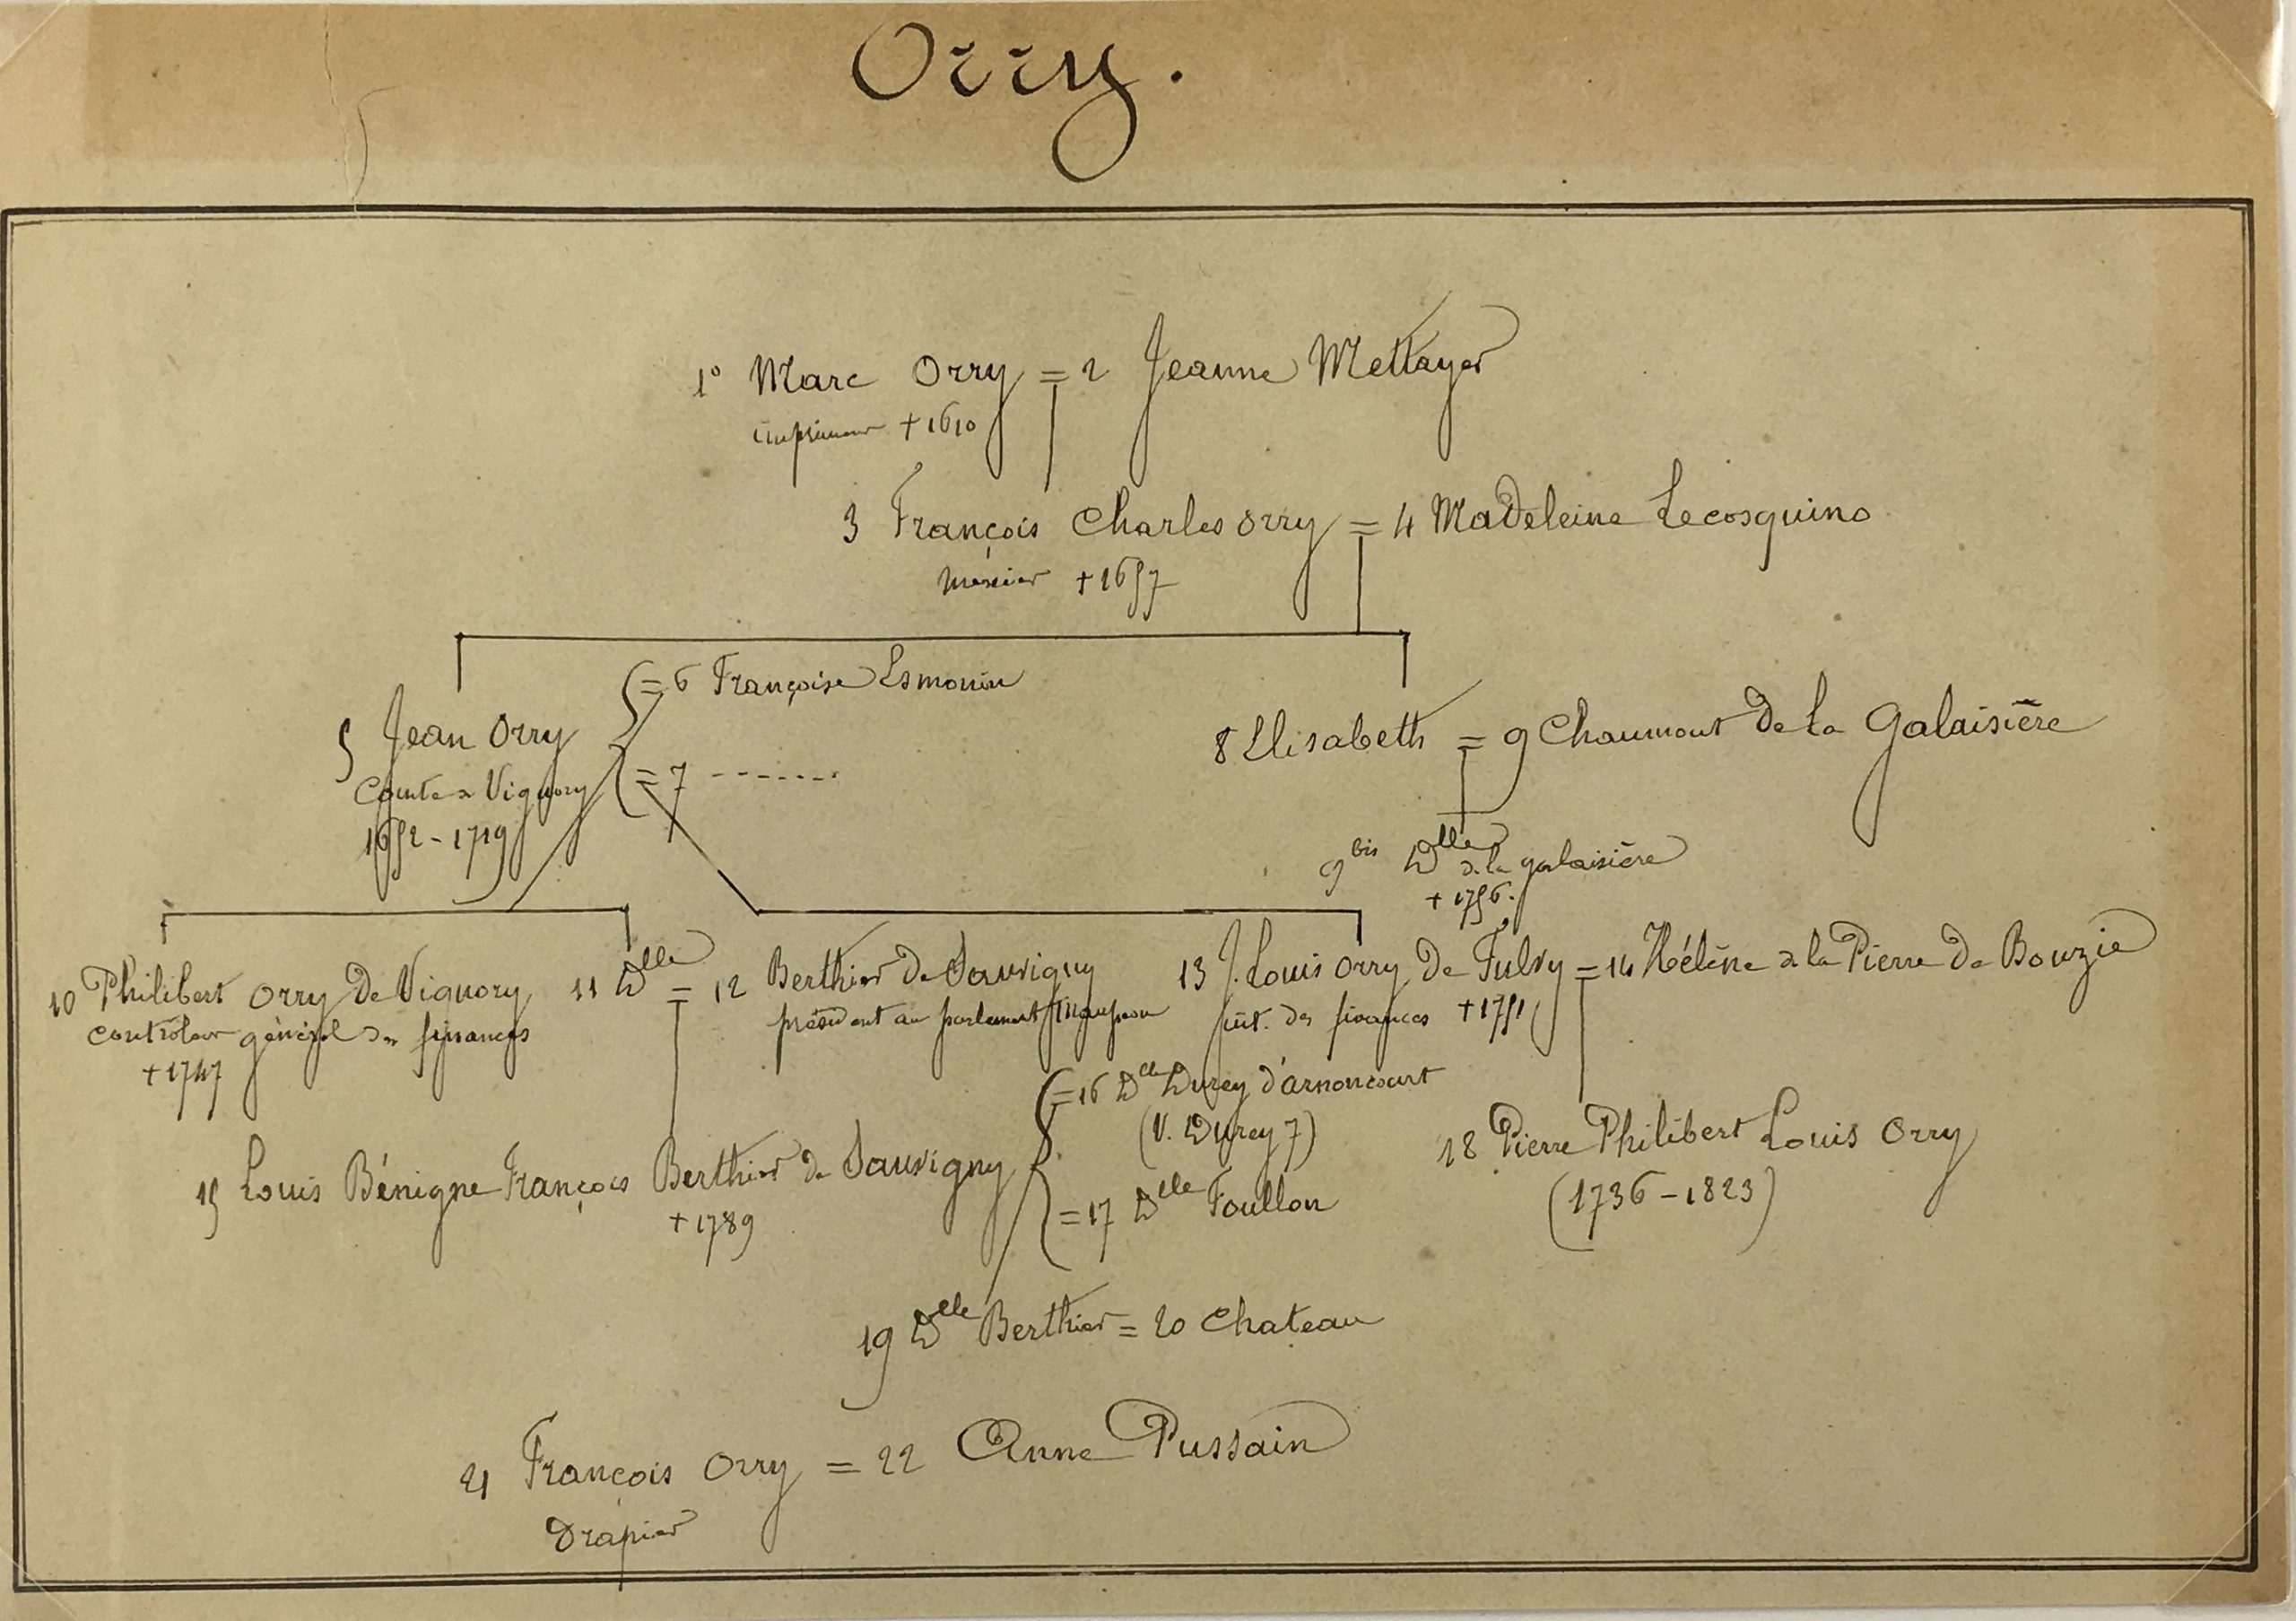 Orry.
1° Marc Orry = 2 Jeanne Mettayer
imprimeur + 1610
3 François Charles Orry = 4 Madeleine Lecosquino
+ 1657
= 6 Françoise Esmonin
5 Jean Orry
Comte de Vignory
1652 - 1719
= 7 -------
8 Elisabeth = 9 Chaumont de la Galaisière
9 bis Dlle de la galaisière
+ 1756.
10 Philibert Orry de Vignory
controleur général des finances
+ 1747
11 Dlle = 12 Berthier de Sauvigny
président au parlement Maupeou
13 J. Louis Orry de Fulvy = 14 Hélène de la Pierre de Bouzie
int. des finances + 1751
15 Louis Bénigne François Berthier de Sauvigny
+ 1789
= 16 Dlle Durey d'arnoncourt
(V. Durey 7)
= 17 Dlle Foullon
18 Pierre Philibert Louis Orry
(1736 - 1823)
19 Dlle Berthier = 20 Chateau
21 François Orry = 22 Anne Pussain
Drapier